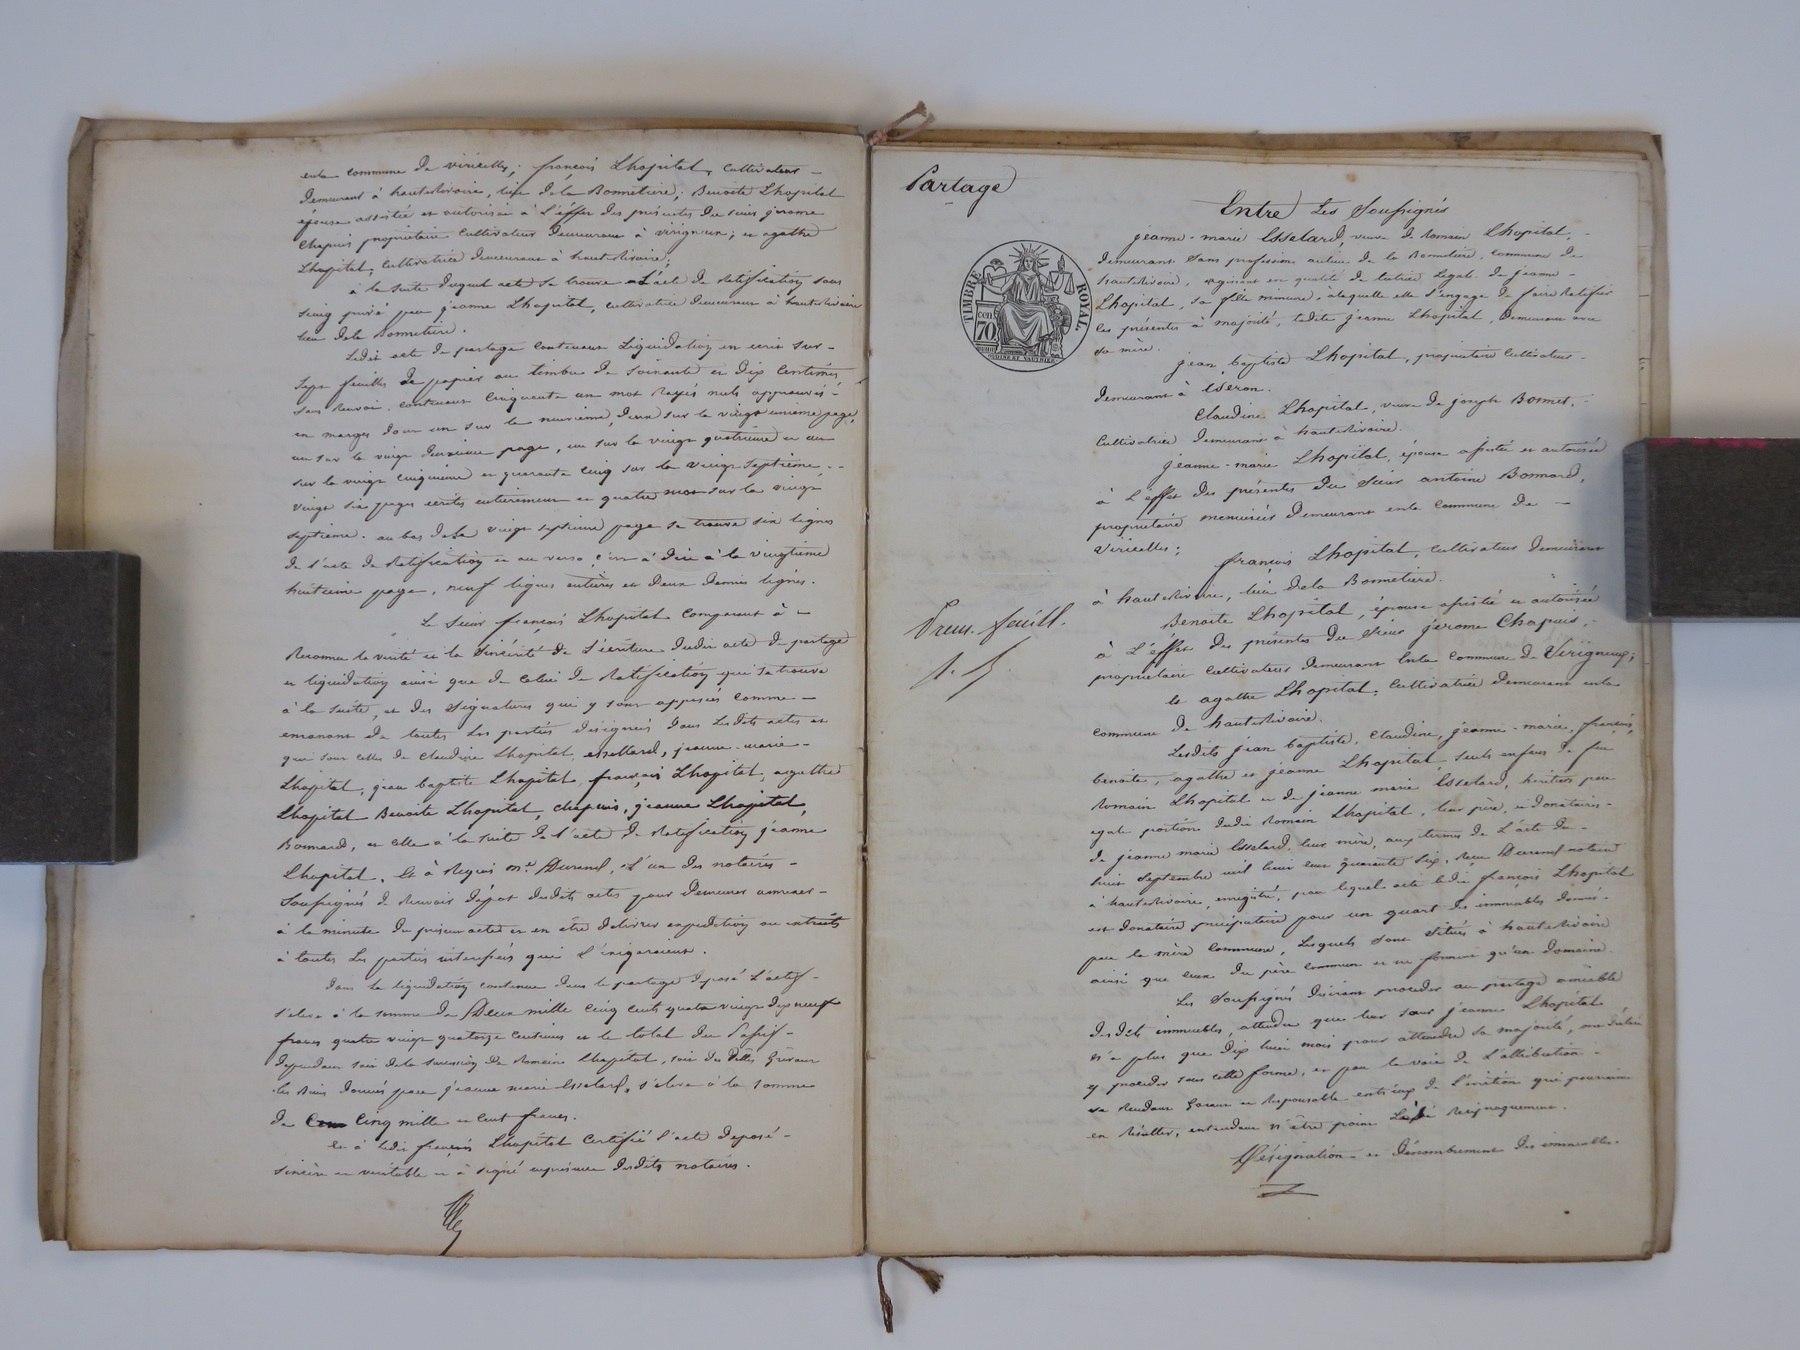 en la commune de viricelles; françois Lhopital, cultivateur
demeurant à hauterivoire, lieu de la Bonnetiere; Benoite Lhopital
épouse assistée et autorisée à l'éffet des présentes du sieur jerome
Chapuis propriétaire cultivateur demeurant à virigneux; et agathe
Lhopital, cultivatrice demeurant à hauterivoire;
à la suite duquel acte se trouve l'acte de Ratification sous
seing privé par jeanne Lhopital, cultivatrice demeurant à hauterivoire
lieu de la Bonnetiere.
Ledit acte de partage contenant Liquidation en ecrit sur
sept feuilles de papier au timbre de soixante et dix centimes
sans Renvoi, contenant Cinquante un mot Rayés nuls approuvés
en marges dont un sur la neuvieme, deux sur la vingt unieme page,
un sur la vingt deuxieme page, un sur la vingt quatrieme et un
sur la vingt cinquieme et quarante cinq sur la vingt septieme.
vingt six pages ecrites entierement et quatre mot sur la vingt
septieme. au bas de la vingt septieme page se trouve six lignes
de l'acte de Ratification et au verso c'est à dire à la vingtieme
huitieme page, neuf lignes entières et deux demies lignes.
Le Sieur françois Lhopital comparant à
Reconnu la verité et la sincérité de l'écriture dudit acte de partage
et liquidation ainsi que de celui de Ratification qui se trouve
à la suite, et des signatures qui y sont apposées comme
emanant de toutes les parties designées dans lesdits actes et
qui sont celles de Claudine Lhopital, essellard, jeanne-marie
Lhopital, jean baptiste Lhopital, françois Lhopital, agathe
Lhopital Benoite Lhopital, chapuis, jeanne Lhopital,
Bonnard, et celle à la suite de l'acte de Ratification jeanne
Lhopital. Et à Requis Me Durand, l'un des notaires
soussignés de Recevoir dépot desdits actes pour demeurer annexer
à la minute du présent acte et en être délivrer expedition ou extraits
à toutes les parties interessées qui l'exigeraient.
Dans la liquidation contenue dans le partage deposé l'actif
s'eleve à la somme de Deux mille cinq cents quatre vingt dix neuf
francs quatre vingt quatorze centimes et le total du Passif
dependant soit de la succession de Romain Lhopital, soit des dettes Grevant
les biens donnés par jeanne marie Esselard, s'eleve à la somme
de cinq mille et cent francs.
Et à ledit françois Lhopital certifié l'acte deposé
sincère et veritable et à signé en présence desdits notaires.
Partage
Entre Les Soussignés
jeanne-marie Esselard, veuve de Romain Lhopital,
demeurant sans profession au lieu de la Bonnetiere, commune de
hauterivoire, agissant en qualité de tutrice legale de jeanne
Lhopital, sa fille mineure, à laquelle elle s'engage de faire Ratifier
les présentes à majorité, ladite jeanne Lhopital, demeurant avec
sa mère.
jean baptiste Lhopital, propriétaire cultivateur
demeurant à Iseron.
Claudine Lhopital, veuve de joseph Bonnet,
Cultivatrice demeurant à hauterivoire.
jeanne-marie Lhopital, épouse assistée et autorisée
à l'effet des présentes du Sieur antoine Bonnard,
propriétaire menuisier demeurant en la commune de
Viricelles;
françois Lhopital, cultivateur demeurant
à hauterivoire, lieu de la Bonnetiere.
Benoite Lhopital, épouse assistée et autorisée
à l'éffet des présentes du sieur jerome Chapuis,
propriétaire cultivateur demeurant En la commune de Virigneux;
Et agathe Lhopital, cultivatrice demeurant en la
commune de hauterivoire.
Lesdits jean baptiste, claudine, jeanne-marie, françois,
benoite, agathe et jeanne Lhopital, seuls enfans de feu
Romain Lhopital et de jeanne marie Esselard, héritiers par
egale portion dudit Romain Lhopital, leur père, et donataires
de jeanne marie Esselard leur mère, aux termes de l'acte du
huit septembre mil huit cent quarante six, Reçu Durand notaire
à hauterivoire, enregistré, par lequel acte ledit françois Lhopital
est donataire préciputaire pour un quart des immeubles donnés
par la mère commune, lesquels sont situés à hauterivoire
ainsi que ceux du père commun et ne forment qu'un domaine.
Les Soussignés désirant proceder au partage amiable
desdits immeubles, attendu que leur sœur jeanne Lhopital
n'a plus que dix huit mois pour atteindre sa majorité, ont déclaré
y proceder sous cette forme, et par la voie de l'attribution
se Rendant garant et Responsable entr'eux de l'éviction qui pourrait
en Résulter, entendant n'être point Lesé Réciproquement.
Désignation et dénombrement des immeubles.
TIMBRE ROYAL.
cen
70
Prem. feuill.